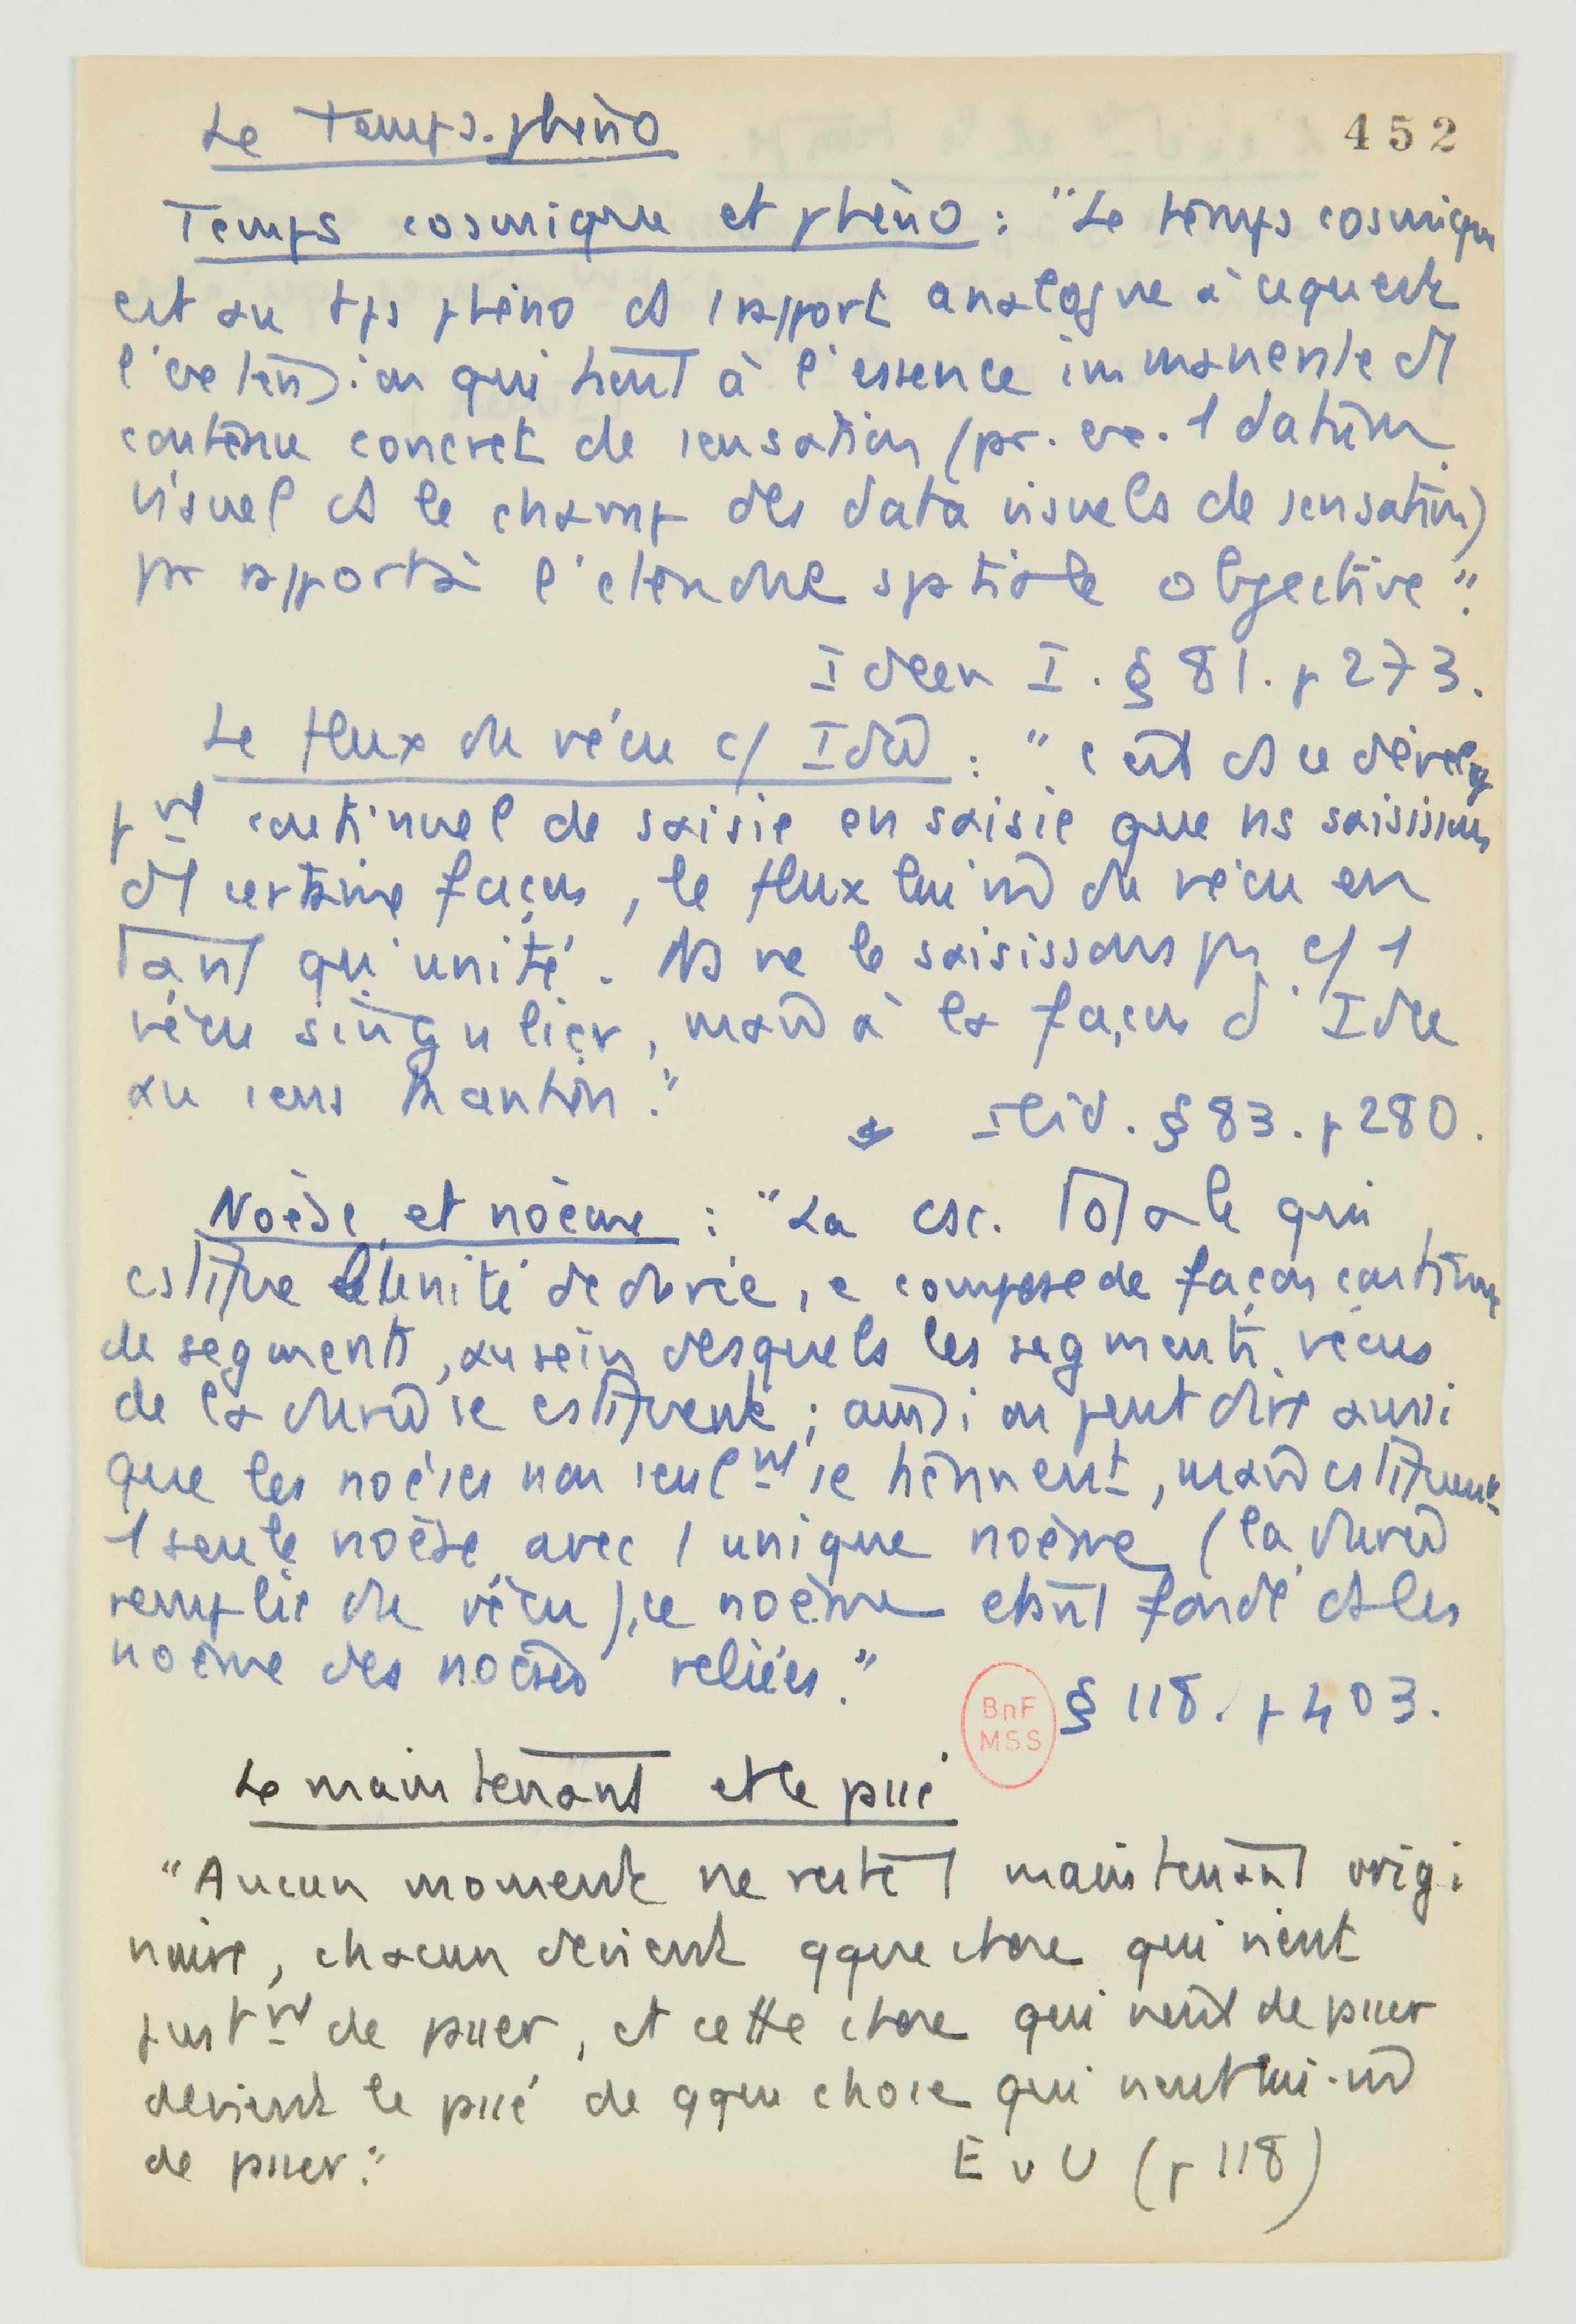 Le Temps phéno
452
Temps cosmique et phéno : "Le temps cosmique
est au tps phéno ds 1 rapport analogue à ce qu'est
l'extension qui tient à l'essence immanente d'1
contenu concret de sensation (pr. ex. 1 datum
visuel ds le champ des data visuels de sensation)
pr rapport à l'étendue spatiale objective".
Ideen I. § 81. p 273.
Le flux du vécu c/ Idée : "c'est ds ce dévelop
pmt continuel de saisie en saisie que ns saisissons
d'1 certaine façon, le flux lui m̂ du vécu en
tant qu'unité. Ns ne le saisissons pas c/ 1
vécu singulier, mais à la façon d'Idée
au sens kantien."
Ibid. § 83. p 280.
Noèse et noème : "La csc. totale qui
cstitue l'unité de durée, se compose de façon continue
de segments, au sein desquels les segments vécus
de la durée se cstituent ; ainsi on peut dire aussi
que les noèses non seulmt se tiennent, mais cstituent
1 seule noèse avec 1 unique noème (la durée
remplie du vécu), ce noème étant fondé ds les
noème des noèses reliées."
§ 118. p 403.
BnF
MSS
Le maintenant et le passé
"Aucun moment ne reste 1 maintenant origi
naire, chacun devient qque chose qui vient
justmt de passer, et cette chose qui vient de passer
devient le passé de qque chose qui vient lui-m̂
de passer."
E u U (p 118)